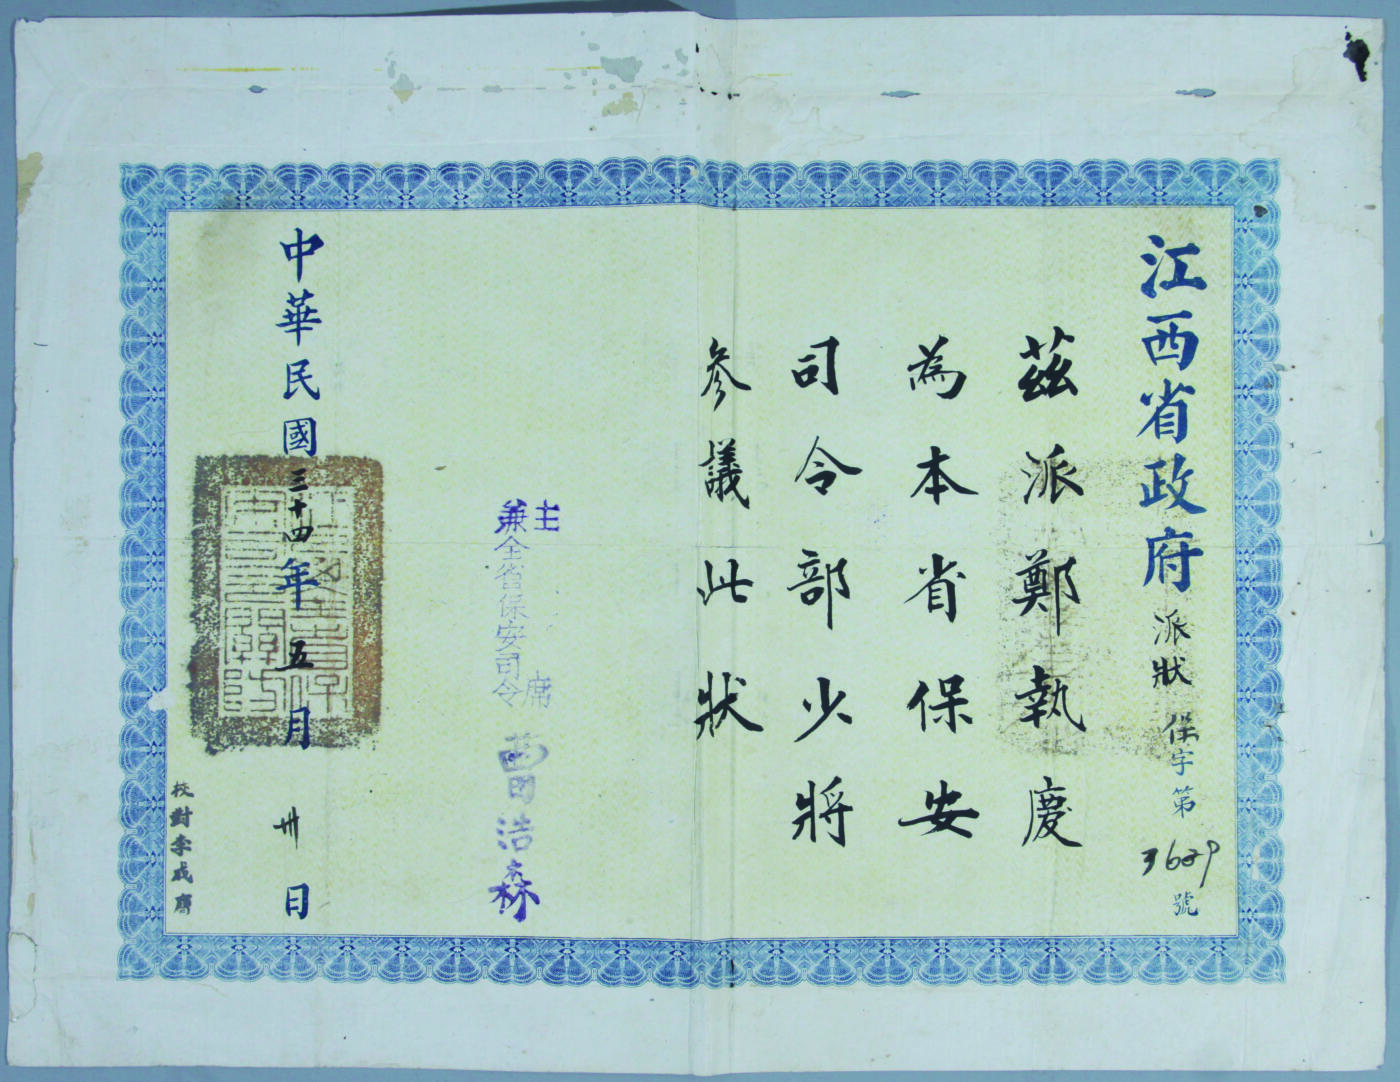 江西省政府派狀 保字第3629號
茲派鄭執慶
為本省保安
司令部少將
參議此狀
主席
兼全省保安司令 曹浩森
中華民國三十四年五月卅日
校對李成齊